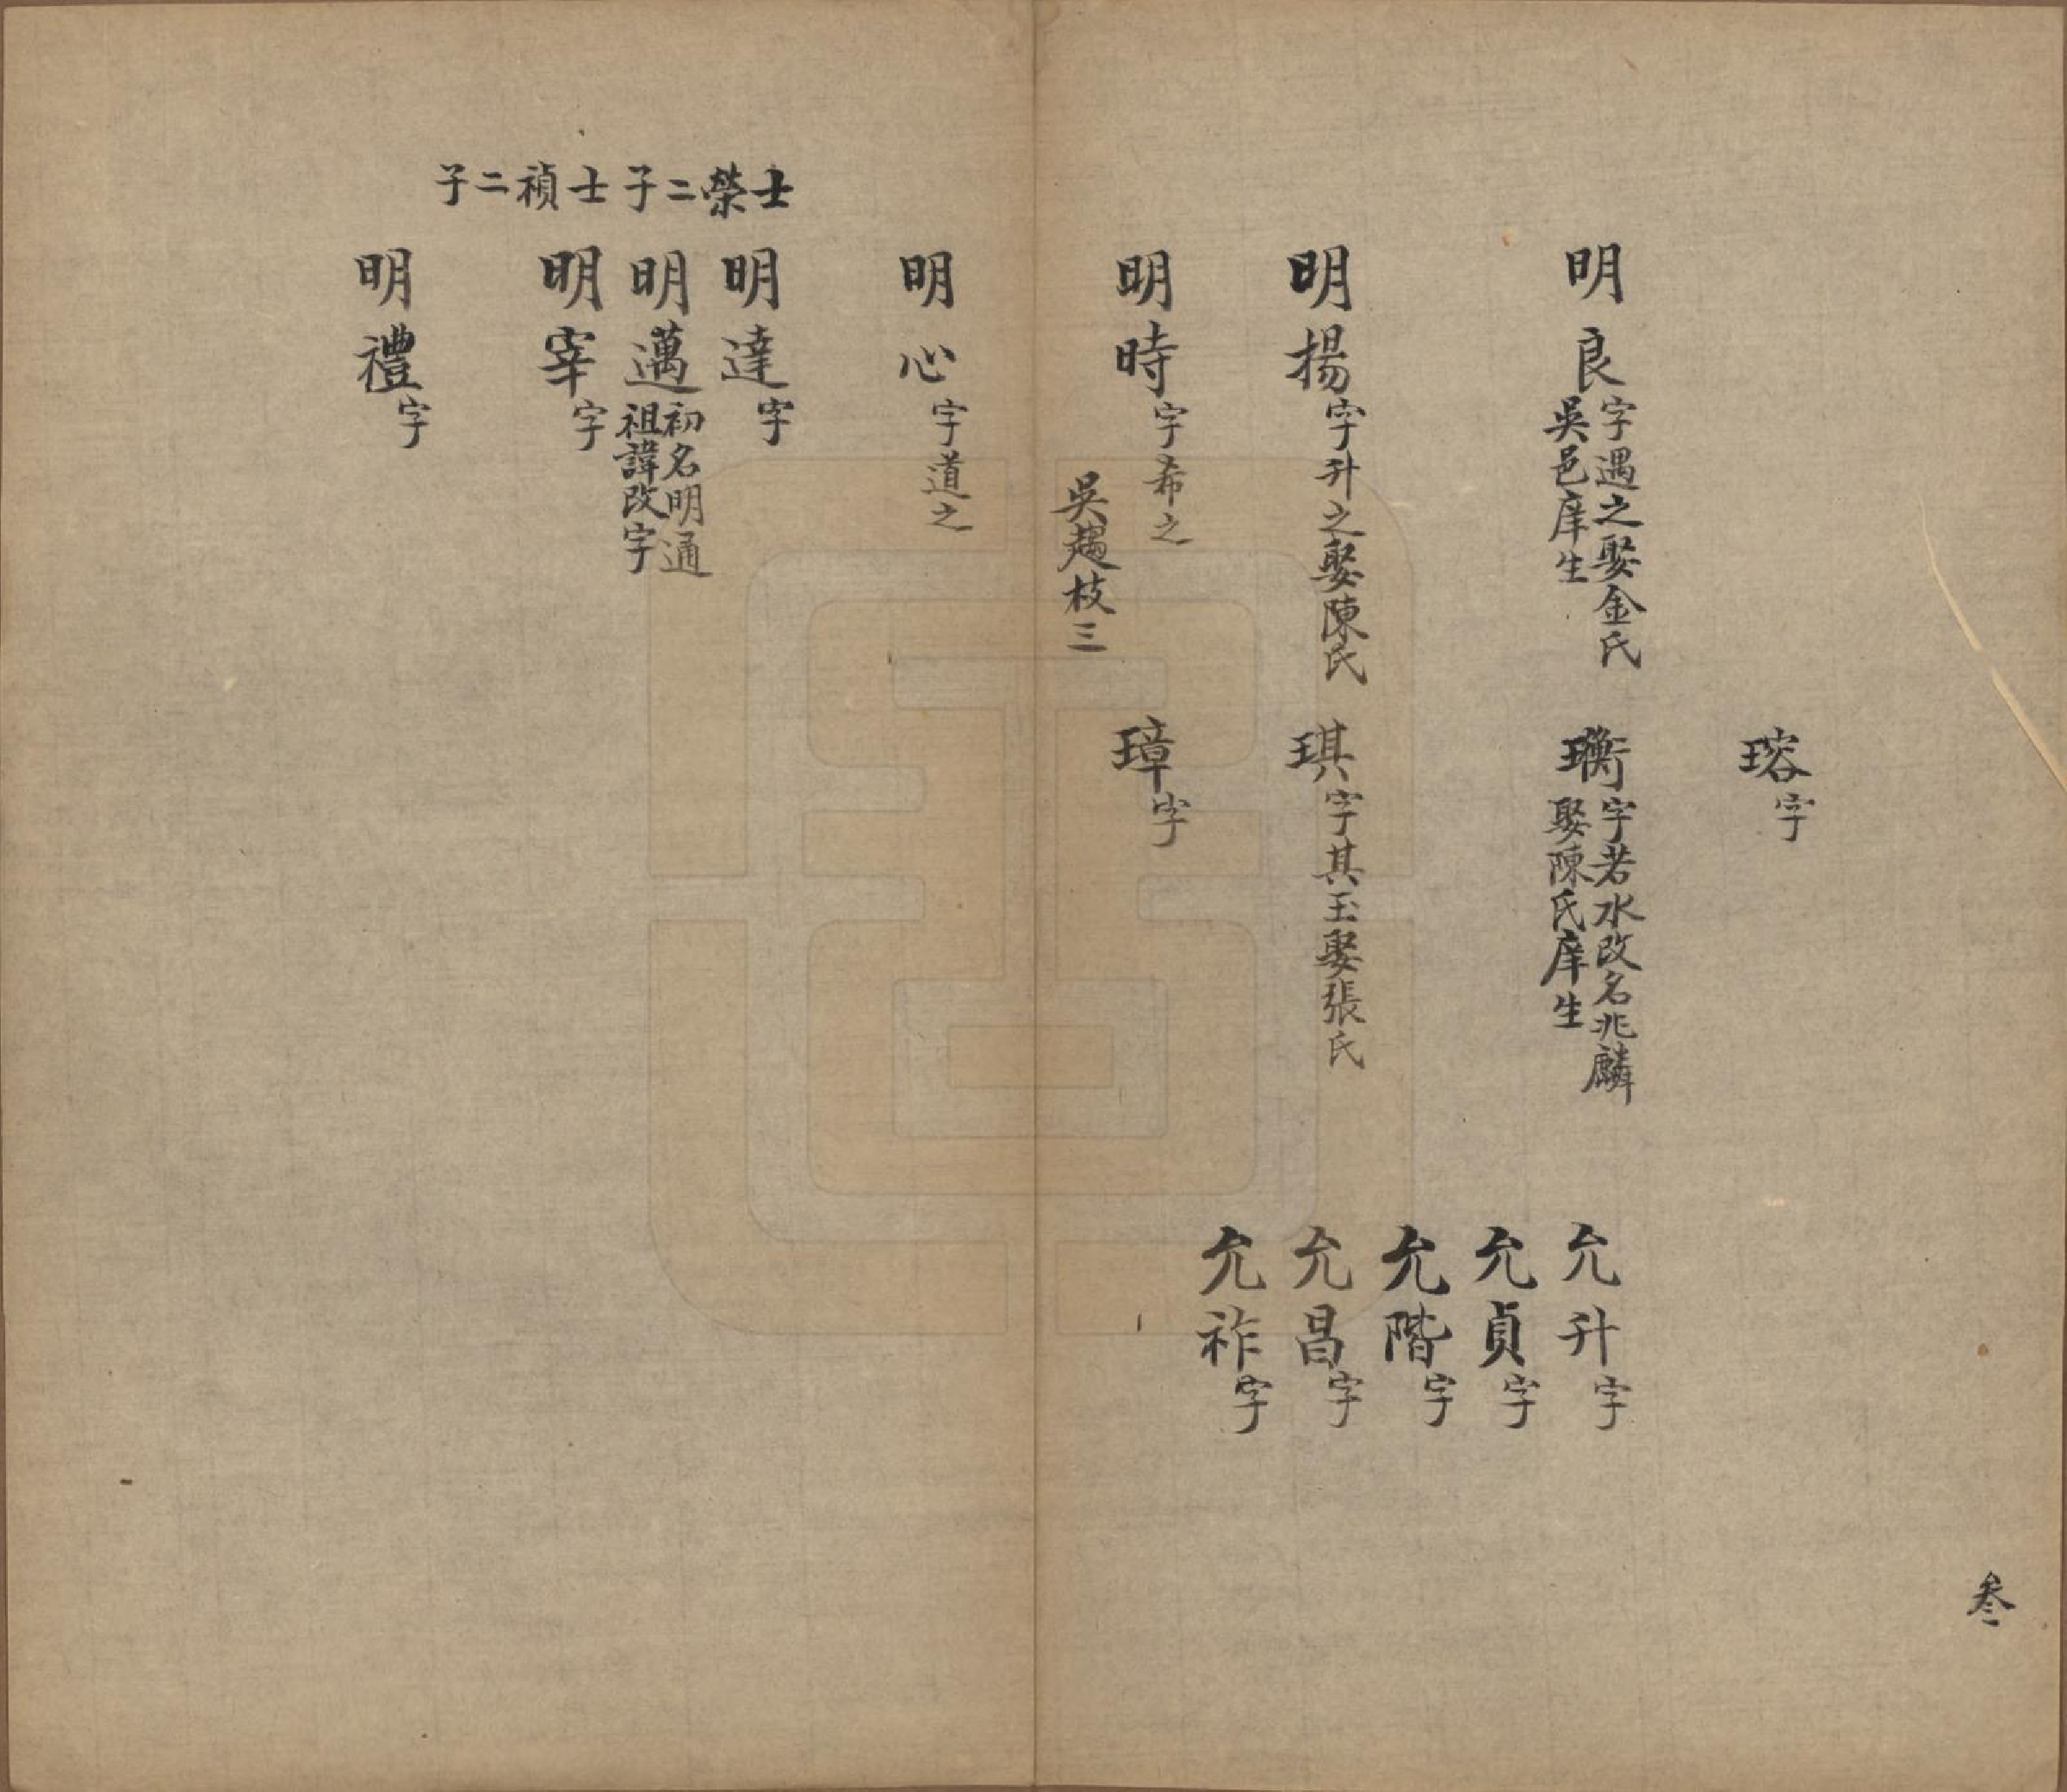 瑢字
明良字遇之娶金氏
吳邑庠生
瑐字若水改名兆麟
娶陳氏庠生
允升字
允貞字
允階字
允昌字
允祚字
明揚字升之娶陳氏
琪字其玉娶張氏
明時字希之
璋字
吳趨枝三
叁
明心字道之
士榮二子
明達字
明邁初名明通
祖諱改字
士禎二子
明宰字
明禮字